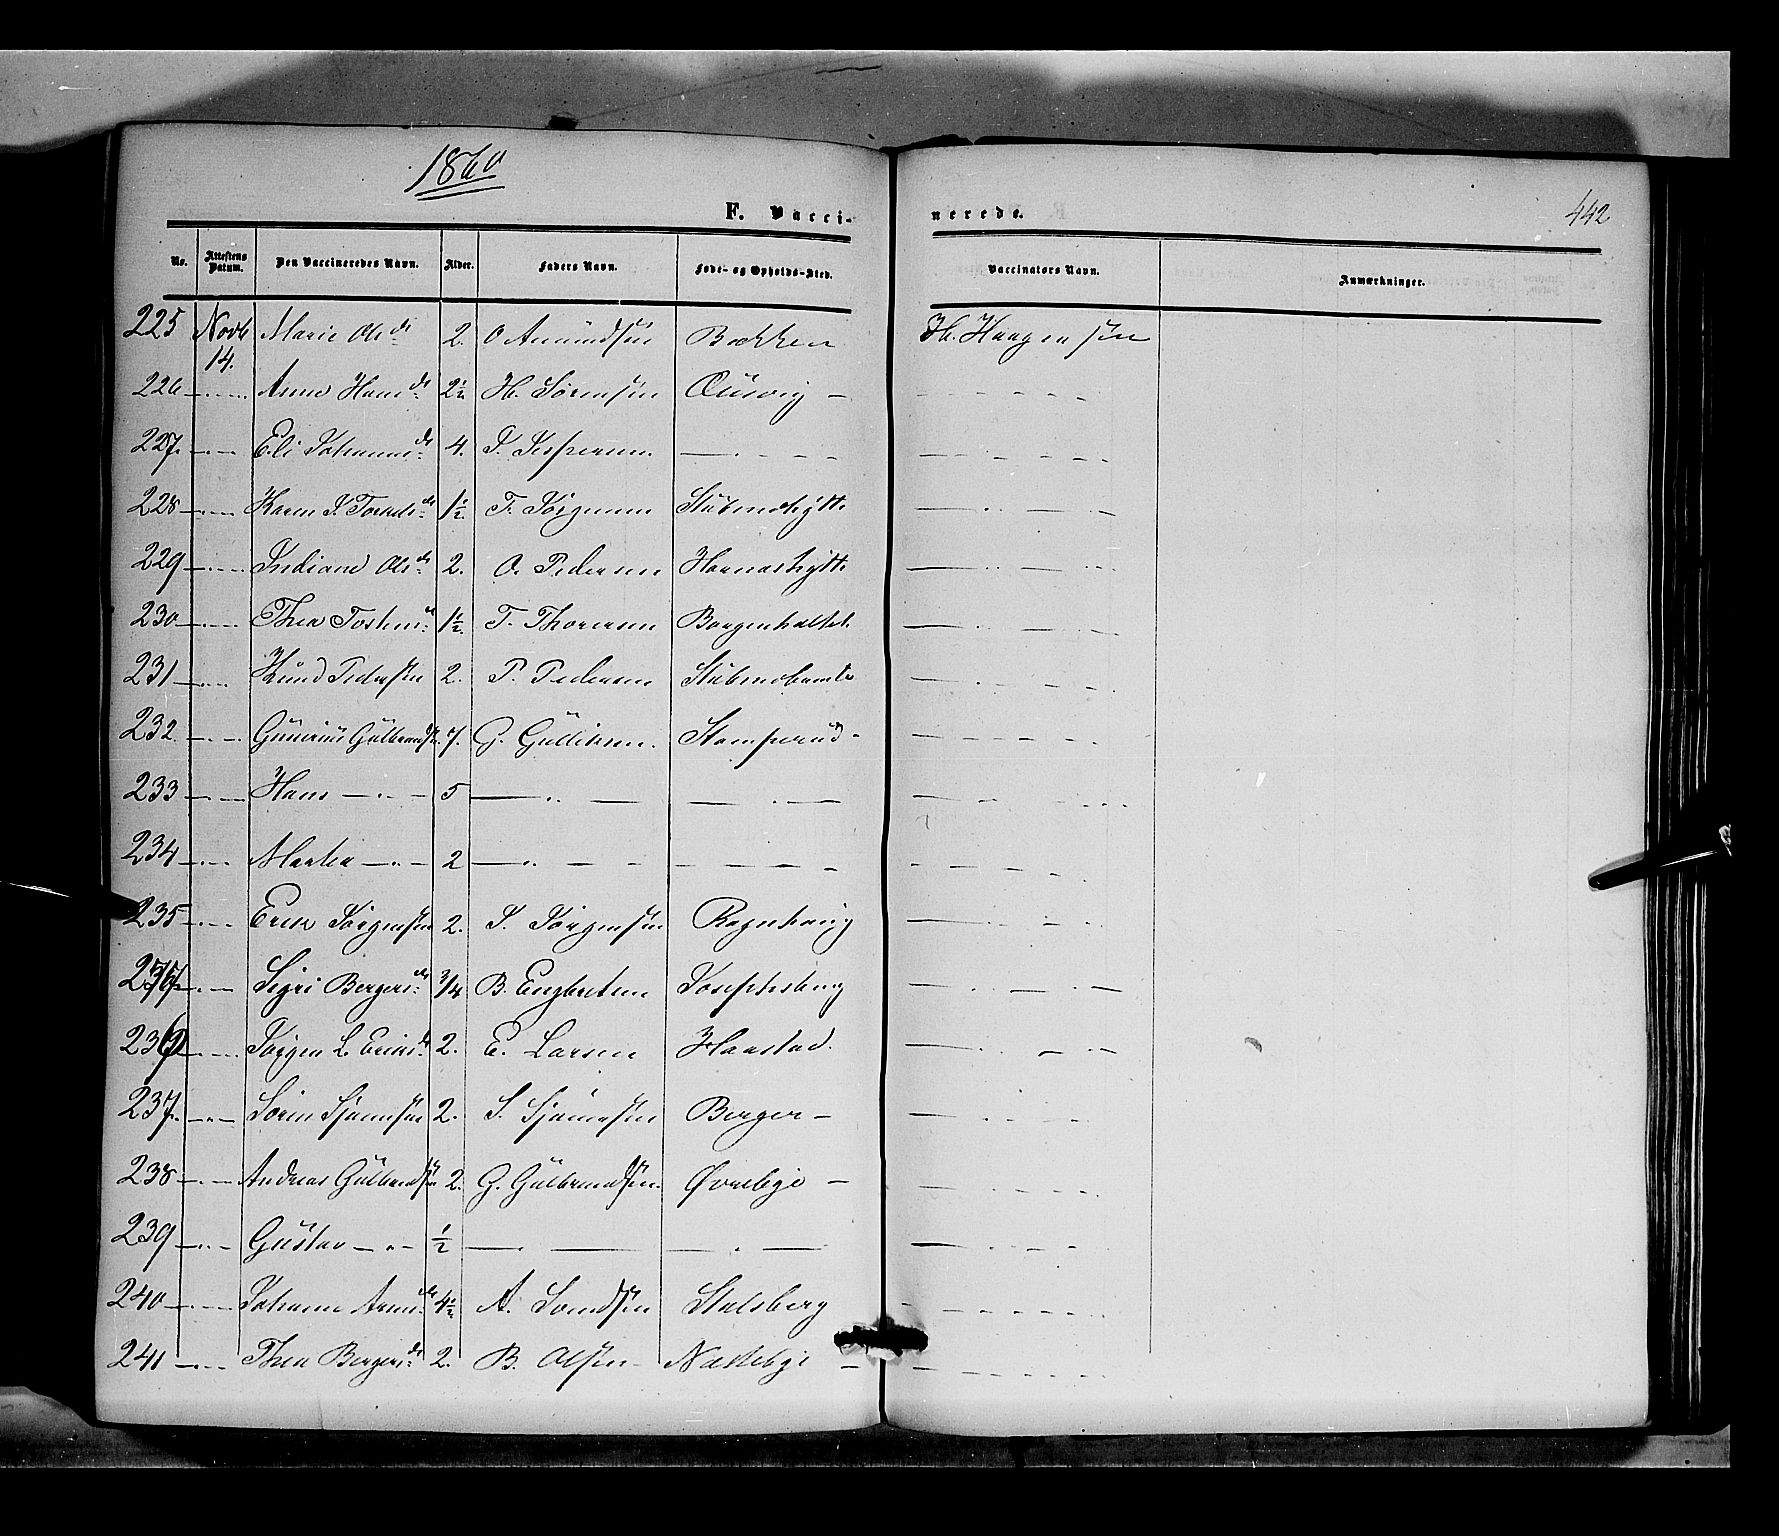 1860
442
F. Vacci-
nerede.
No. Attestens Datum. Den Vaccineredes Navn. Alder. Faders Navn. Føde- og Opholds-Sted. Vaccinators Navn. Anmærkninger.
225 Novb 14. Marie Olsdr 2. O Amundsen Bakken H. Haagensen
226 —..— Anne Hansdr 2½ H. Sørensen — — — — —
227. —..— Eli Johannsdr 4. J. Jespersen — . — — — — — — — —
228 —..— Karen J. Torkelsdr 1½ T. Jørgensen Stubenehytte — .. — .. —
229 —..— Indiane Olsdr 2. O. Pedersen — .. — .. —
230 —..— Thea Tostensdr 1½ T. Thoresen Borgenhaltet — .. — — —
231 —..— Knud Pedersen 2. P. Pedersen — . — — — —
232 —..— Gunerius Gulbrandsn 7. G. Gulliksen Stomperud — — — — —
233 —..— Hans —..— 5 — .. — — . — — . — . —
234 —..— Marthe —..— 2 — .. — — — — — — — — —
235 —..— Erik Jørgensen 2. J. Jørgensen Ragnhaug — . — — —
Sigri Bergersdr 3/4 B. Engbretsen Josephsberg — .. — . — —
236 —..— Jørgen L. Eriksdr 2. E. Larsen Haastad. — .. — —
237. —..— Søren Sjønnesen 2. S. Sjønnesen Berger — — . — — —
238 —..— Andreas Gulbrandsen 2. G. Gulbrandsen Øverbye — — . — — —
239 —..— Gustav —..— ½ — . — — . — — . — — —
240 —..— Johanne Arnesdr 4½ A. Svendsen Stalsberg — . — — —
241 —..— Thea Bergersdr 2. B. Olsen Nattebye — — . — — —